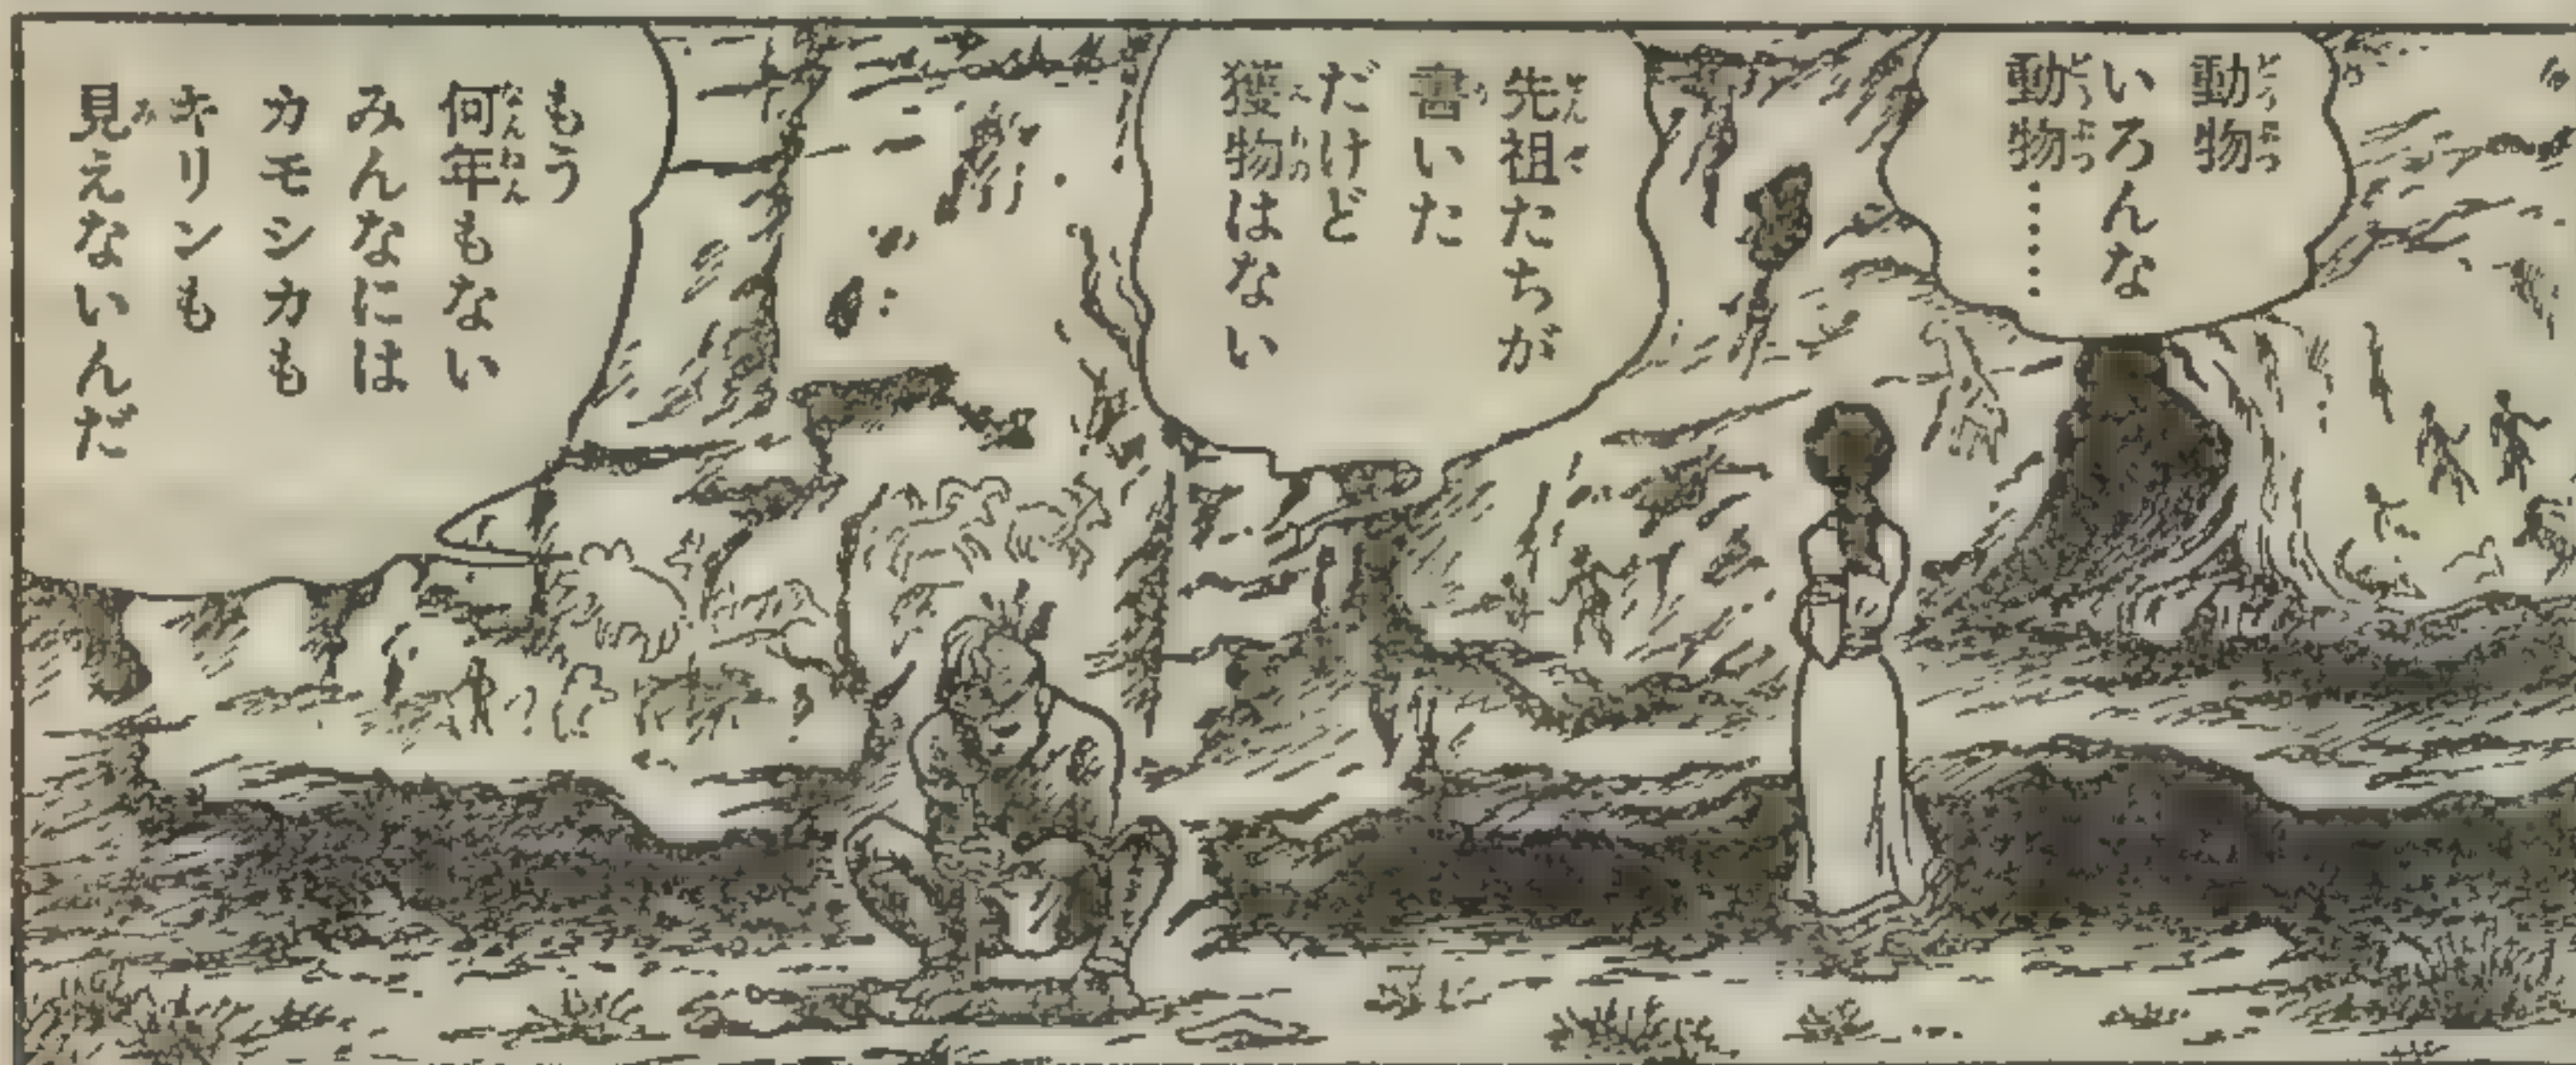 動物
いろんな
動物……
先祖たちが
書いた
だけど
獲物はない
もう
何年もない
みんなには
カモシカも
キリンも
見えないんだ